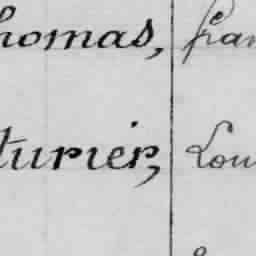 homas, fran
turier, Lou